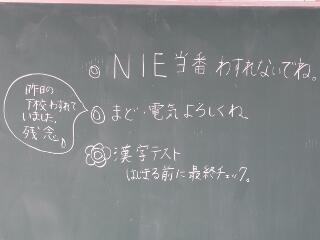 ◎NIE当番わすれないでね。
昨日の
下校わすれて
いました。
残念。
◎まど・電気よろしくね。
漢字テスト
はじまる前に最終チェック。